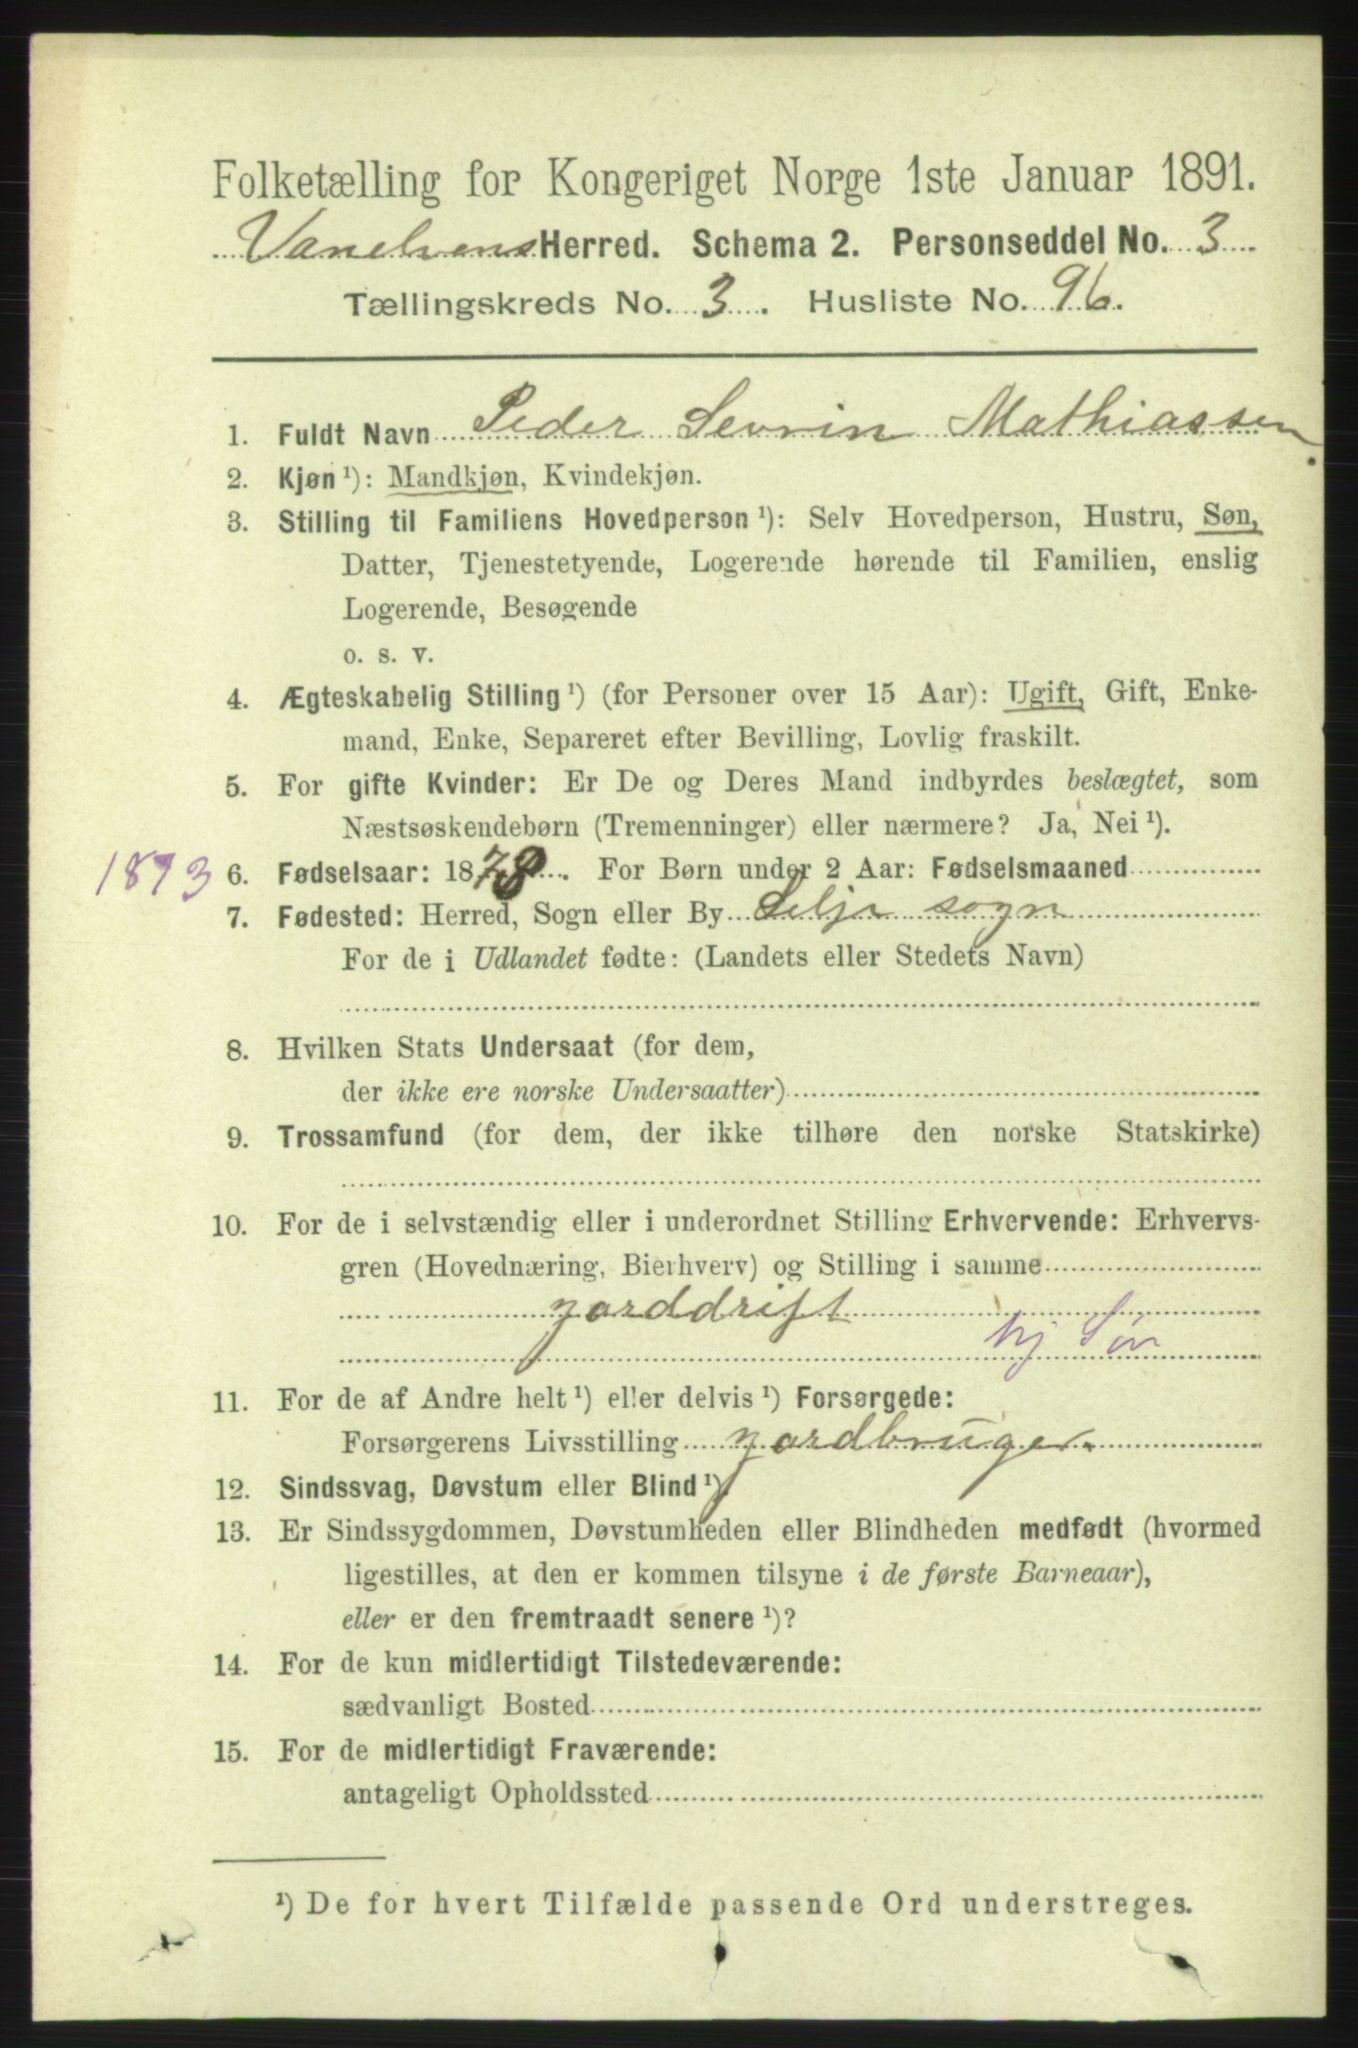 Folketælling for Kongeriget Norge 1ste Januar 1891.
Vanelvens Herred. Schema 2. Personseddel No. 3
Tællingskreds No. 3. Husliste No. 96.
1. Fuldt Navn Peder Sevrin Mathiassen
2. Kjøn ¹): Mandkjøn, Kvindekjøn.
3. Stilling til Familiens Hovedperson ¹): Selv Hovedperson, Hustru, Søn,
Datter, Tjenestetyende, Logerende hørende til Familien, enslig
Logerende, Besøgende
o. s. v.
4. Ægteskabelig Stilling ¹) (for Personer over 15 Aar): Ugift, Gift, Enke-
mand, Enke, Separeret efter Bevilling, Lovlig fraskilt.
5. For gifte Kvinder: Er De og Deres Mand indbyrdes beslægtet, som
Næstsøskendebørn (Tremenninger) eller nærmere? Ja, Nei ¹).
1873 6. Fødselsaar: 18 . For Børn under 2 Aar: Fødselsmaaned
7. Fødested: Herred, Sogn eller By Selje sogn
For de i Udlandet fødte: (Landets eller Stedets Navn)
8. Hvilken Stats Undersaat (for dem,
der ikke ere norske Undersaatter)
9. Trossamfund (for dem, der ikke tilhøre den norske Statskirke)
10. For de i selvstændig eller i underordnet Stilling Erhvervende: Erhvervs-
gren (Hovednæring, Bierhverv) og Stilling i samme
garddrift
hj Søn
11. For de af Andre helt ¹) eller delvis ¹) Forsørgede:
Forsørgerens Livsstilling gardbruger.
12. Sindssvag, Døvstum eller Blind ¹).
13. Er Sindssygdommen, Døvstumheden eller Blindheden medfødt (hvormed
ligestilles, at den er kommen tilsyne i de første Barneaar),
eller er den fremtraadt senere ¹)?
14. For de kun midlertidigt Tilstedeværende:
sædvanligt Bosted
15. For de midlertidigt Fraværende:
antageligt Opholdssted
¹) De for hvert Tilfælde passende Ord understreges.